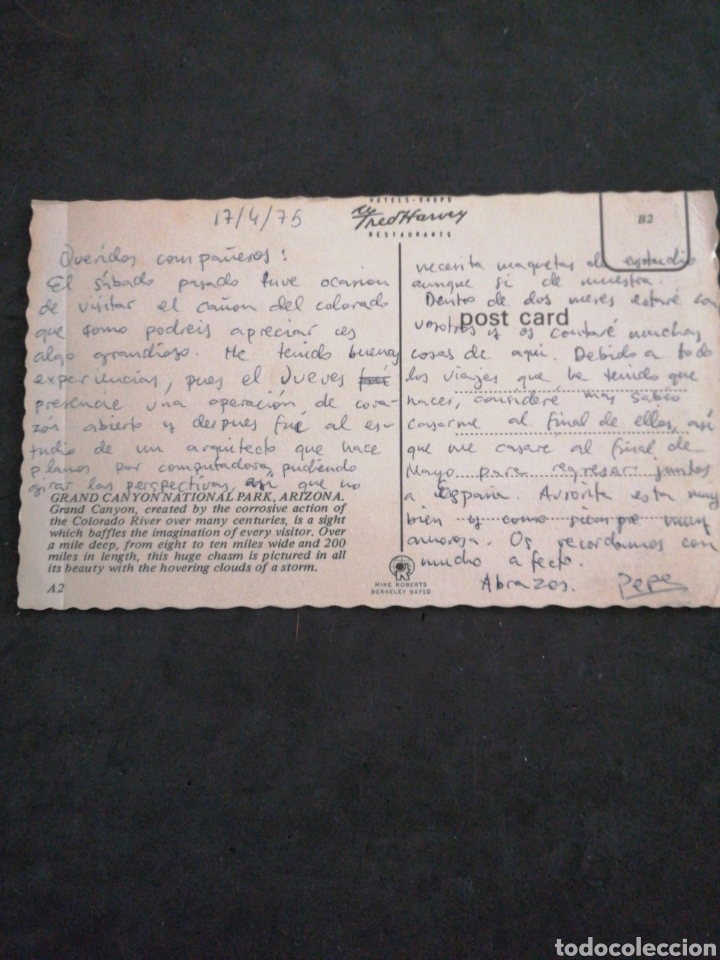 17/4/75
HOTELS·SHOPS
Fred Harvey
RESTAURANTS
B2
Queridos compañeros:
El sábado pasado tuve ocasion
de visitar el cañon del colorado
que como podreis apreciar es
algo grandioso. He tenido buenas
experiencias, pues el Jueves
presencie una operación de cora-
zón abierto y despues fui al es-
tudio de un arquitecto que hace
planos por computadora, pudiendo
girar las perspectivas, asi que no
GRAND CANYON NATIONAL PARK, ARIZONA.
Grand Canyon, created by the corrosive action of
the Colorado River over many centuries, is a sight
which baffles the imagination of every visitor. Over
a mile deep, from eight to ten miles wide and 200
miles in length, this huge chasm is pictured in all
its beauty with the hovering clouds of a storm.
A2
necesita maquetas de estudio
aunque si de muestra.
Dentro de dos meses estaré con
post card
vosotros y os contaré muchas
cosas de aqui. Debido a todo
los viajes que he tenido que
hacer, consideré más sabio
casarme al final de ellos, asi
que me casare al final de
Mayo para regresar juntos
a España. Aurorita esta muy
bien y como siempre muy
amorosa. Os recordamos con
mucho afecto.
Abrazos. Pepe
MIKE ROBERTS
BERKELEY 94710
todocoleccion